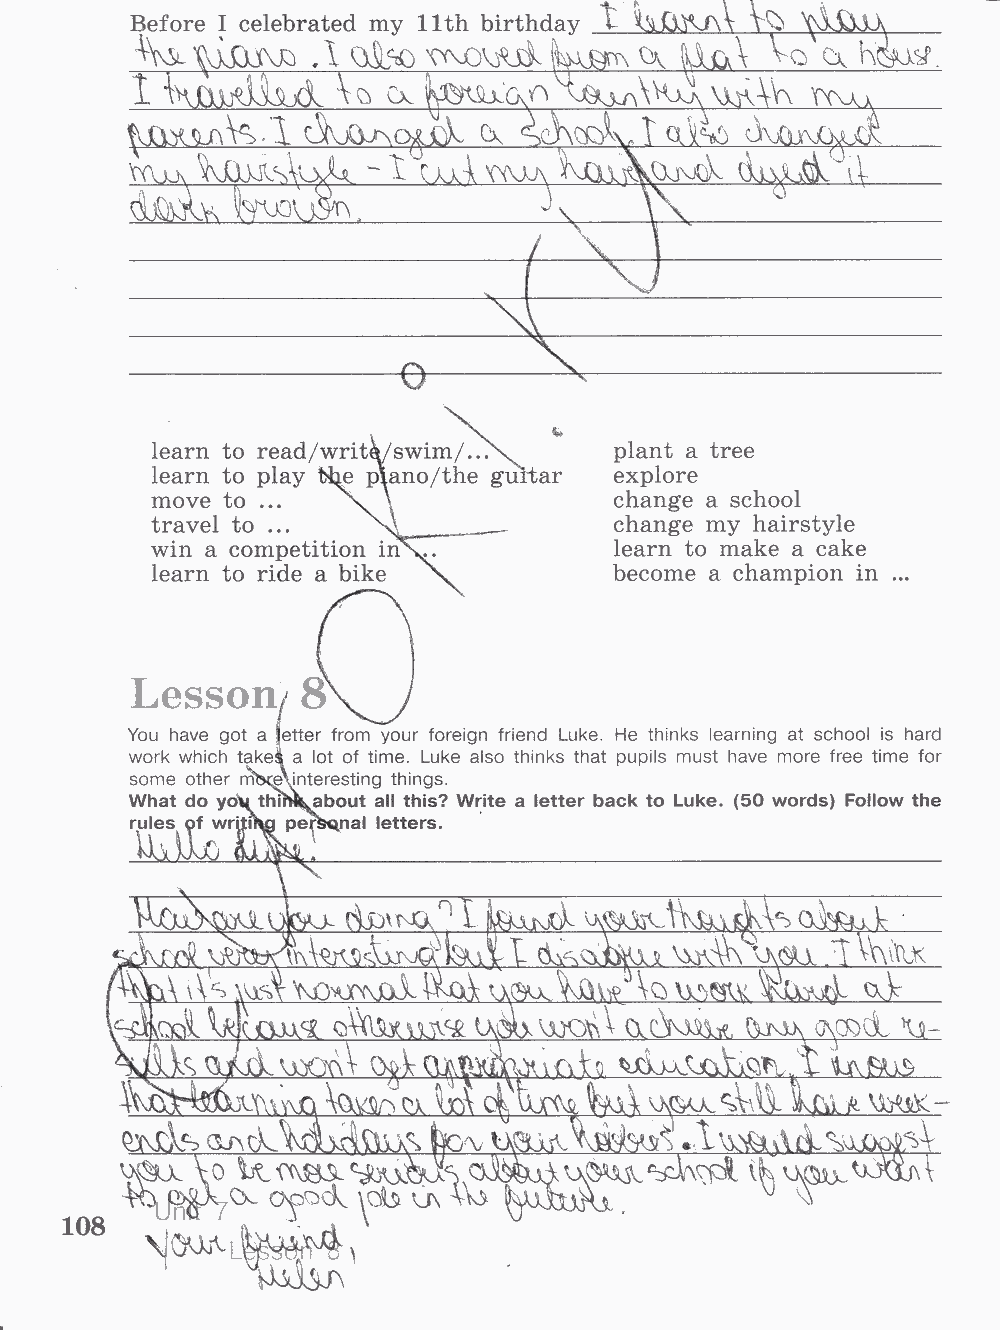 Before I celebrated my 11th birthday I learnt to play
the piano. I also moved from a flat to a house.
I travelled to a foreign country with my
parents. I changed a school. I also changed
my hairstyle - I cut my hair and dyed it
dark brown.
learn to read/write/swim/...
learn to play the piano/the guitar
move to ...
travel to ...
win a competition in ...
learn to ride a bike
plant a tree
explore
change a school
change my hairstyle
learn to make a cake
become a champion in ...
Lesson 8
You have got a letter from your foreign friend Luke. He thinks learning at school is hard
work which takes a lot of time. Luke also thinks that pupils must have more free time for
some other more interesting things.
What do you think about all this? Write a letter back to Luke. (50 words) Follow the
rules of writing personal letters.
Hello Luke!
How are you doing? I found your thoughts about
school very interesting but I disagree with you. I think
that it's just normal that you have to work hard at
school because otherwise you won't achieve any good re-
sults and won't get appropriate education. I know
that learning takes a lot of time but you still have week-
ends and holidays for your hobbies. I would suggest
you to be more serious about your school if you want
to get a good job in the future.
Unit 7
108
Your friend,
Lesson 8
Helen